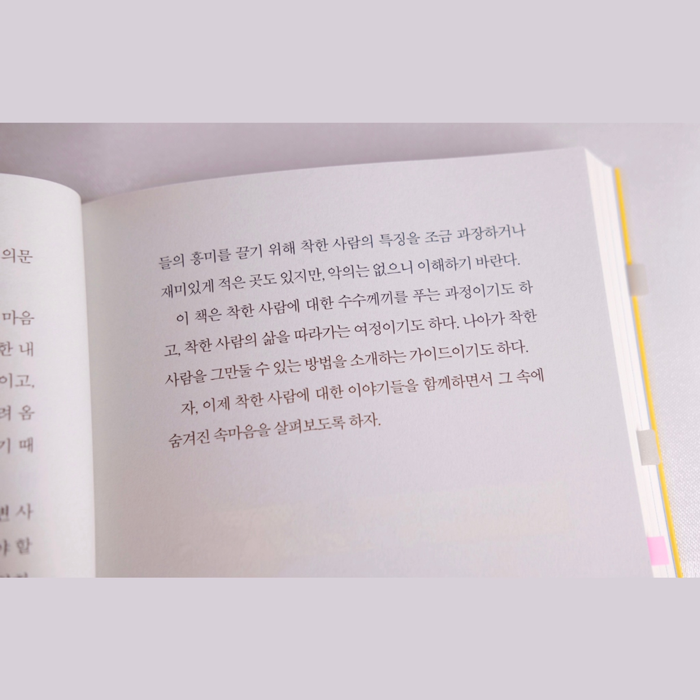 의문
마음
한 내
이고,
려 옴
기 때
면 사
야 할
들의 흥미를 끌기 위해 착한 사람의 특징을 조금 과장하거나
재미있게 적은 곳도 있지만, 악의는 없으니 이해하기 바란다.
이 책은 착한 사람에 대한 수수께끼를 푸는 과정이기도 하
고, 착한 사람의 삶을 따라가는 여정이기도 하다. 나아가 착한
사람을 그만둘 수 있는 방법을 소개하는 가이드이기도 하다.
자, 이제 착한 사람에 대한 이야기들을 함께하면서 그 속에
숨겨진 속마음을 살펴보도록 하자.